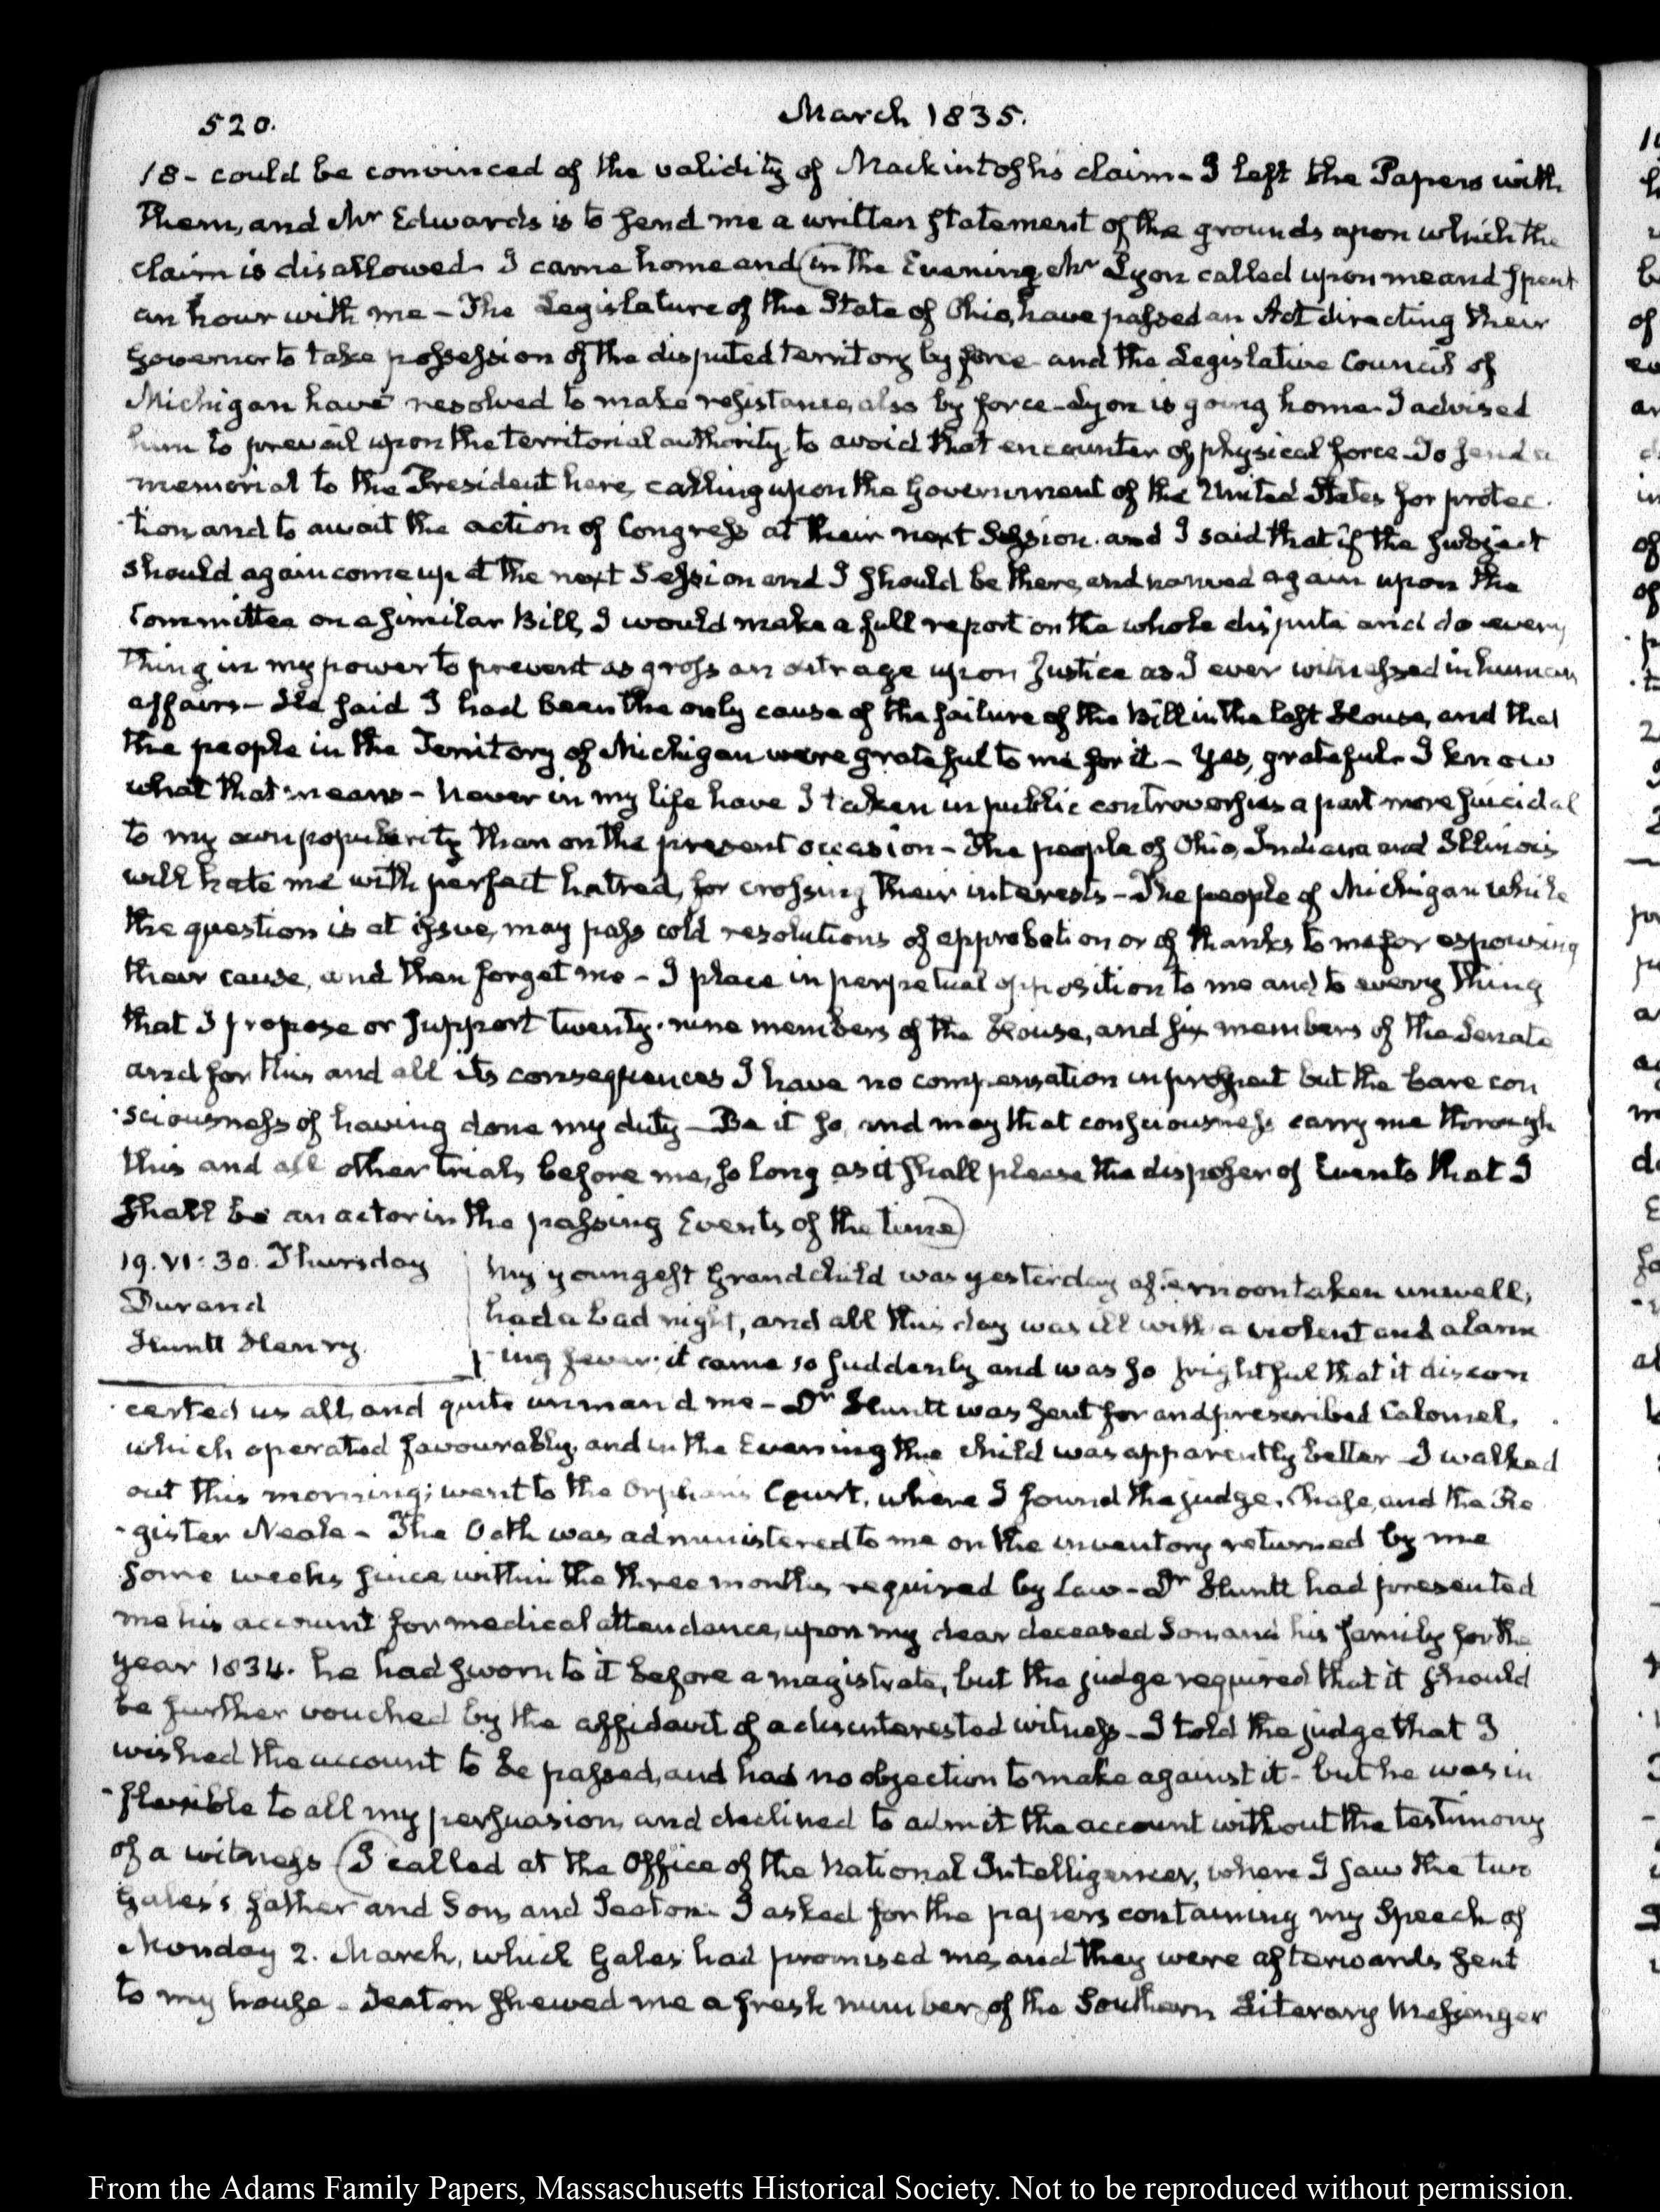 520.
March 1835.
18 - could be convinced of the validity of Mackintosh's claim - I left the Papers with
them, and Mr Edwards is to send me a written statement of the grounds upon which the
claim is disallowed - I came home and (in the Evening Mr Lyon called upon me and spent
an hour with me - The Legislature of the State of Ohio, have passed an Act directing their
Governor to take possession of the disputed territory by force - and the Legislative Council of
Michigan have resolved to make resistance, also by force - Lyon is going home - I advised
him to prevail upon the territorial authority, to avoid that encounter of physical force - To send a
memorial to the President here, calling upon the Government of the United States for protec-
-tion, and to await the action of Congress at their next Session - and I said that if the subject
should again come up at the next Session and I should be there, and named again upon the
Committee on a similar Bill, I would make a full report on the whole dispute and do every
thing in my power to prevent as gross an outrage upon Justice as I ever witnessed in human
affairs - He said I had been the only cause of the failure of the Bill in the last House, and that
the people in the Territory of Michigan were grateful to me for it - Yes, grateful - I know
what that means - Never in my life have I taken in public controversies a part more suicidal
to my own popularity than on the present occasion - The people of Ohio, Indiana and Illinois
will hate me with perfect hatred, for crossing their interests - The people of Michigan while
the question is at issue, may pass cold resolutions of approbation or of thanks to me for espousing
their cause, and then forget me - I place in perpetual opposition to me and to every thing
that I propose or support twenty-nine members of the House, and six members of the Senate
and for this and all its consequences I have no compensation in prospect but the bare con
-sciousness of having done my duty - Be it so, and may that consciousness carry me through
this and all other trials before me, so long as it shall please the disposer of Events that I
shall be an actor in the passing Events of the time)
19. VI:30. Thursday
Durand
Huntt Henry
My youngest Grandchild was yesterday afternoon taken unwell,
had a bad night, and all this day was ill with a violent and alarm
-ing fever; it came so suddenly and was so frightful that it discon
-certed us all, and quite unman'd me - Dr Huntt was sent for and prescribed Calomel,
which operated favourably, and in the Evening the child was apparently better - I walked
out this morning; went to the Orphan's Court, where I found the judge, Chase, and the Re
-gister Neale - The Oath was administered to me on the inventory returned by me
some weeks since, within the three months required by Law - Dr Huntt had presented
me his account for medical attendance, upon my dear deceased Son, and his family for the
year 1834. he had sworn to it before a magistrate, but the judge required that it should
be further vouched by the affidavit of a disinterested witness - I told the judge that I
wished the account to be passed, and had no objection to make against it - but he was in
-flexible to all my persuasion, and declined to admit the account without the testimony
of a witness (I called at the Office of the National Intelligencer, where I saw the two
Gales's father and Son, and Seaton - I asked for the papers containing my Speech of
Monday 2. March, which Gales had promised me, and they were afterwards sent
to my house - Seaton shewed me a fresh number of the Southern Literary Messenger
From the Adams Family Papers, Massachusetts Historical Society. Not to be reproduced without permission.